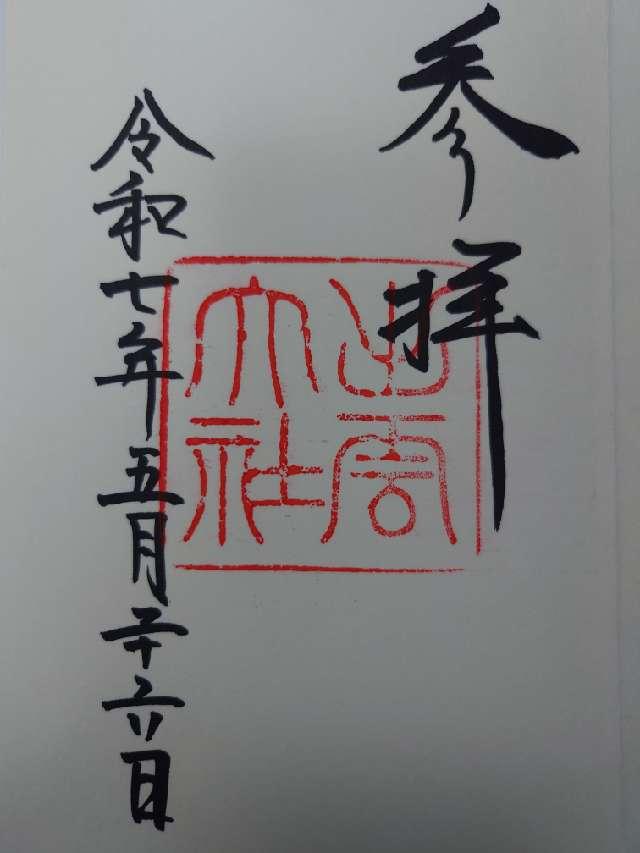 参拝
出雲大社
令和七年五月二十六日